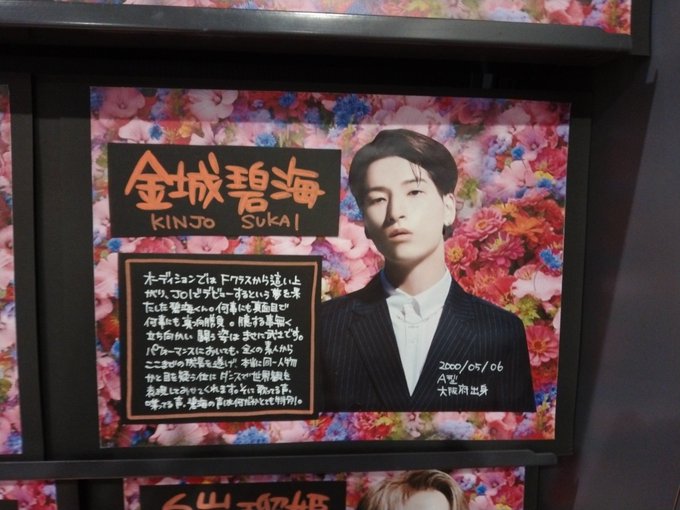 金城碧海
KINJO SUKAI
オーディションでは Fクラスから這い上
がり、JO1でデビューするという夢を果
たした碧海くん。何事にも真面目で
何事にも真っ向勝負。臆する事無く
立ち向かい 闘う姿は まさに武士です。
パフォーマンスにおいても、全くの素人から
ここまでの成長を遂げ、本当に同一人物
かと目を疑う位に ダンスで世界観を
表現してみせてくれます。そして歌ってる声、
喋ってる声、碧海の声は何だかとても特別。
2000/05/06
A型
大阪府出身